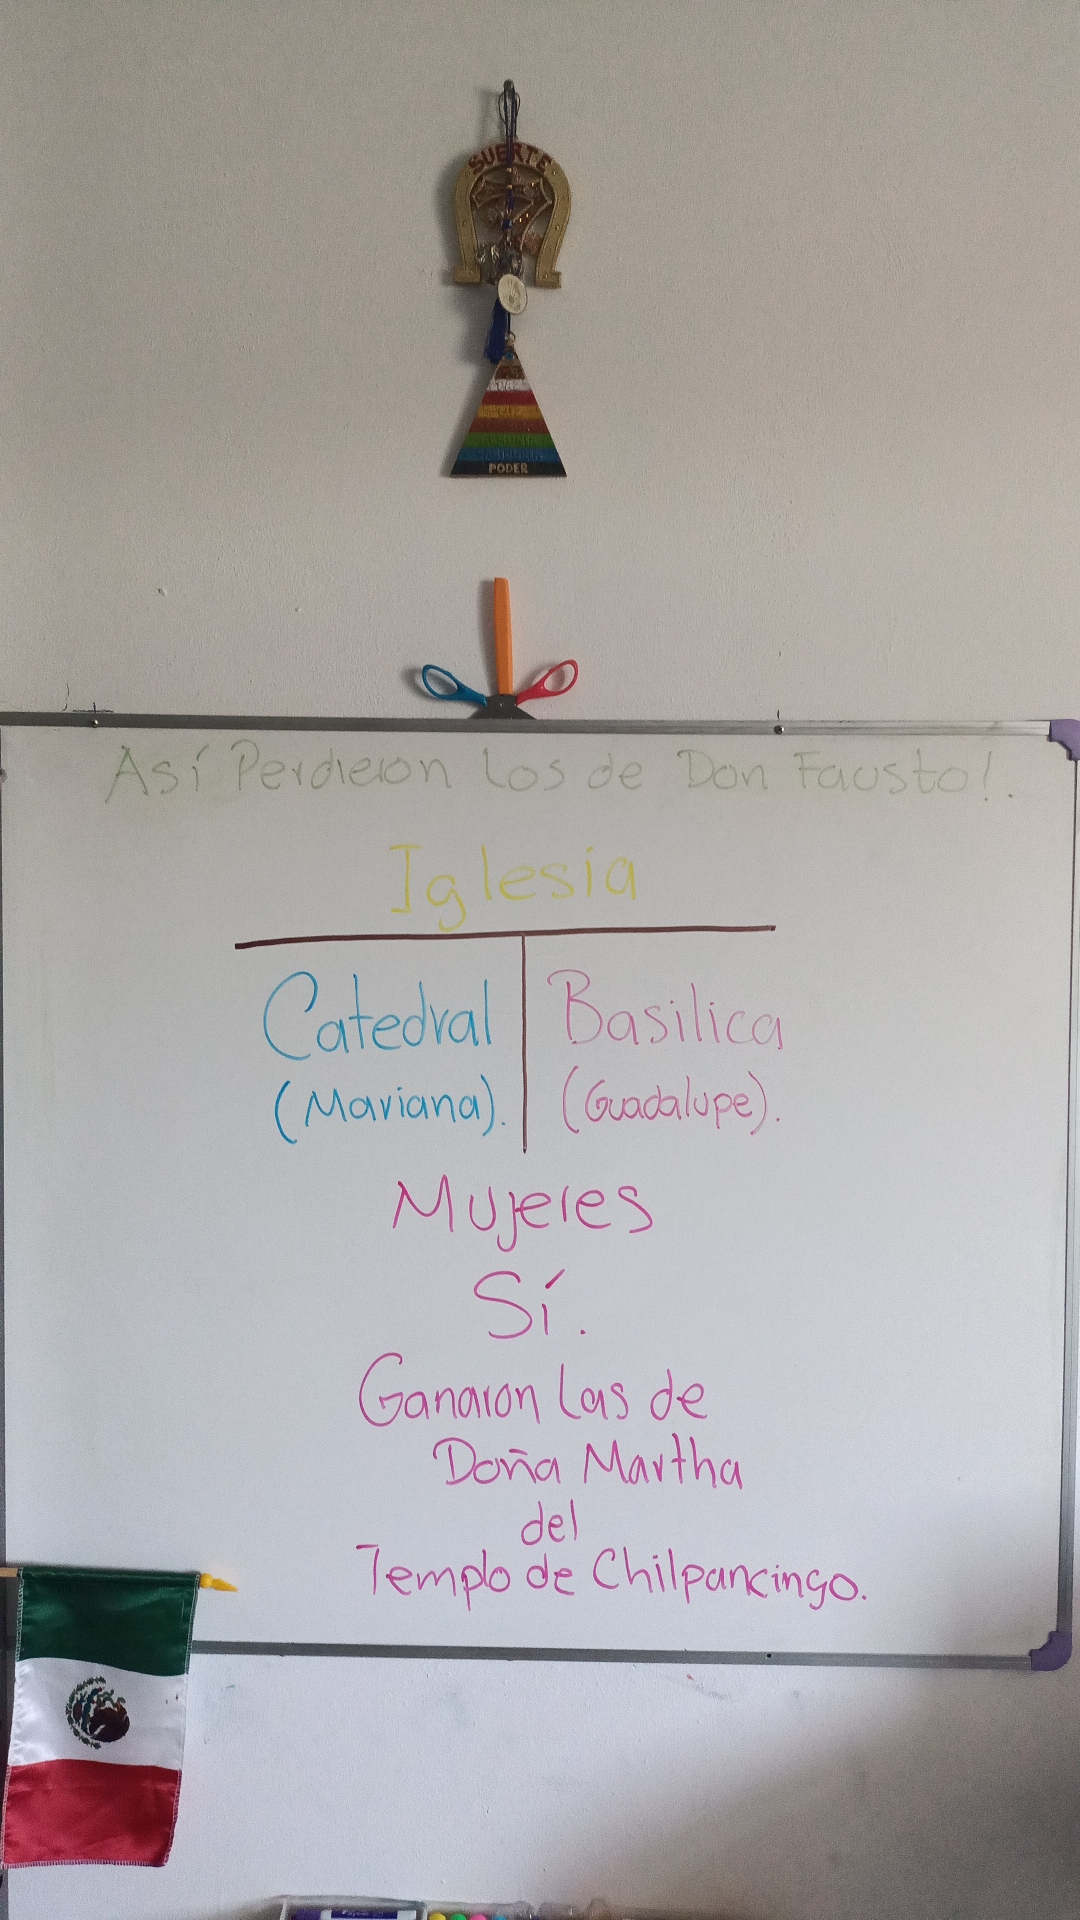 SUERTE
PODER
Así Perdieron Los de Don Fausto!.
Iglesia
Catedral
(Mariana).
Basilica
(Guadalupe).
Mujeres
Sí.
Ganaron Las de
Doña Martha
del
Templo de Chilpancingo.